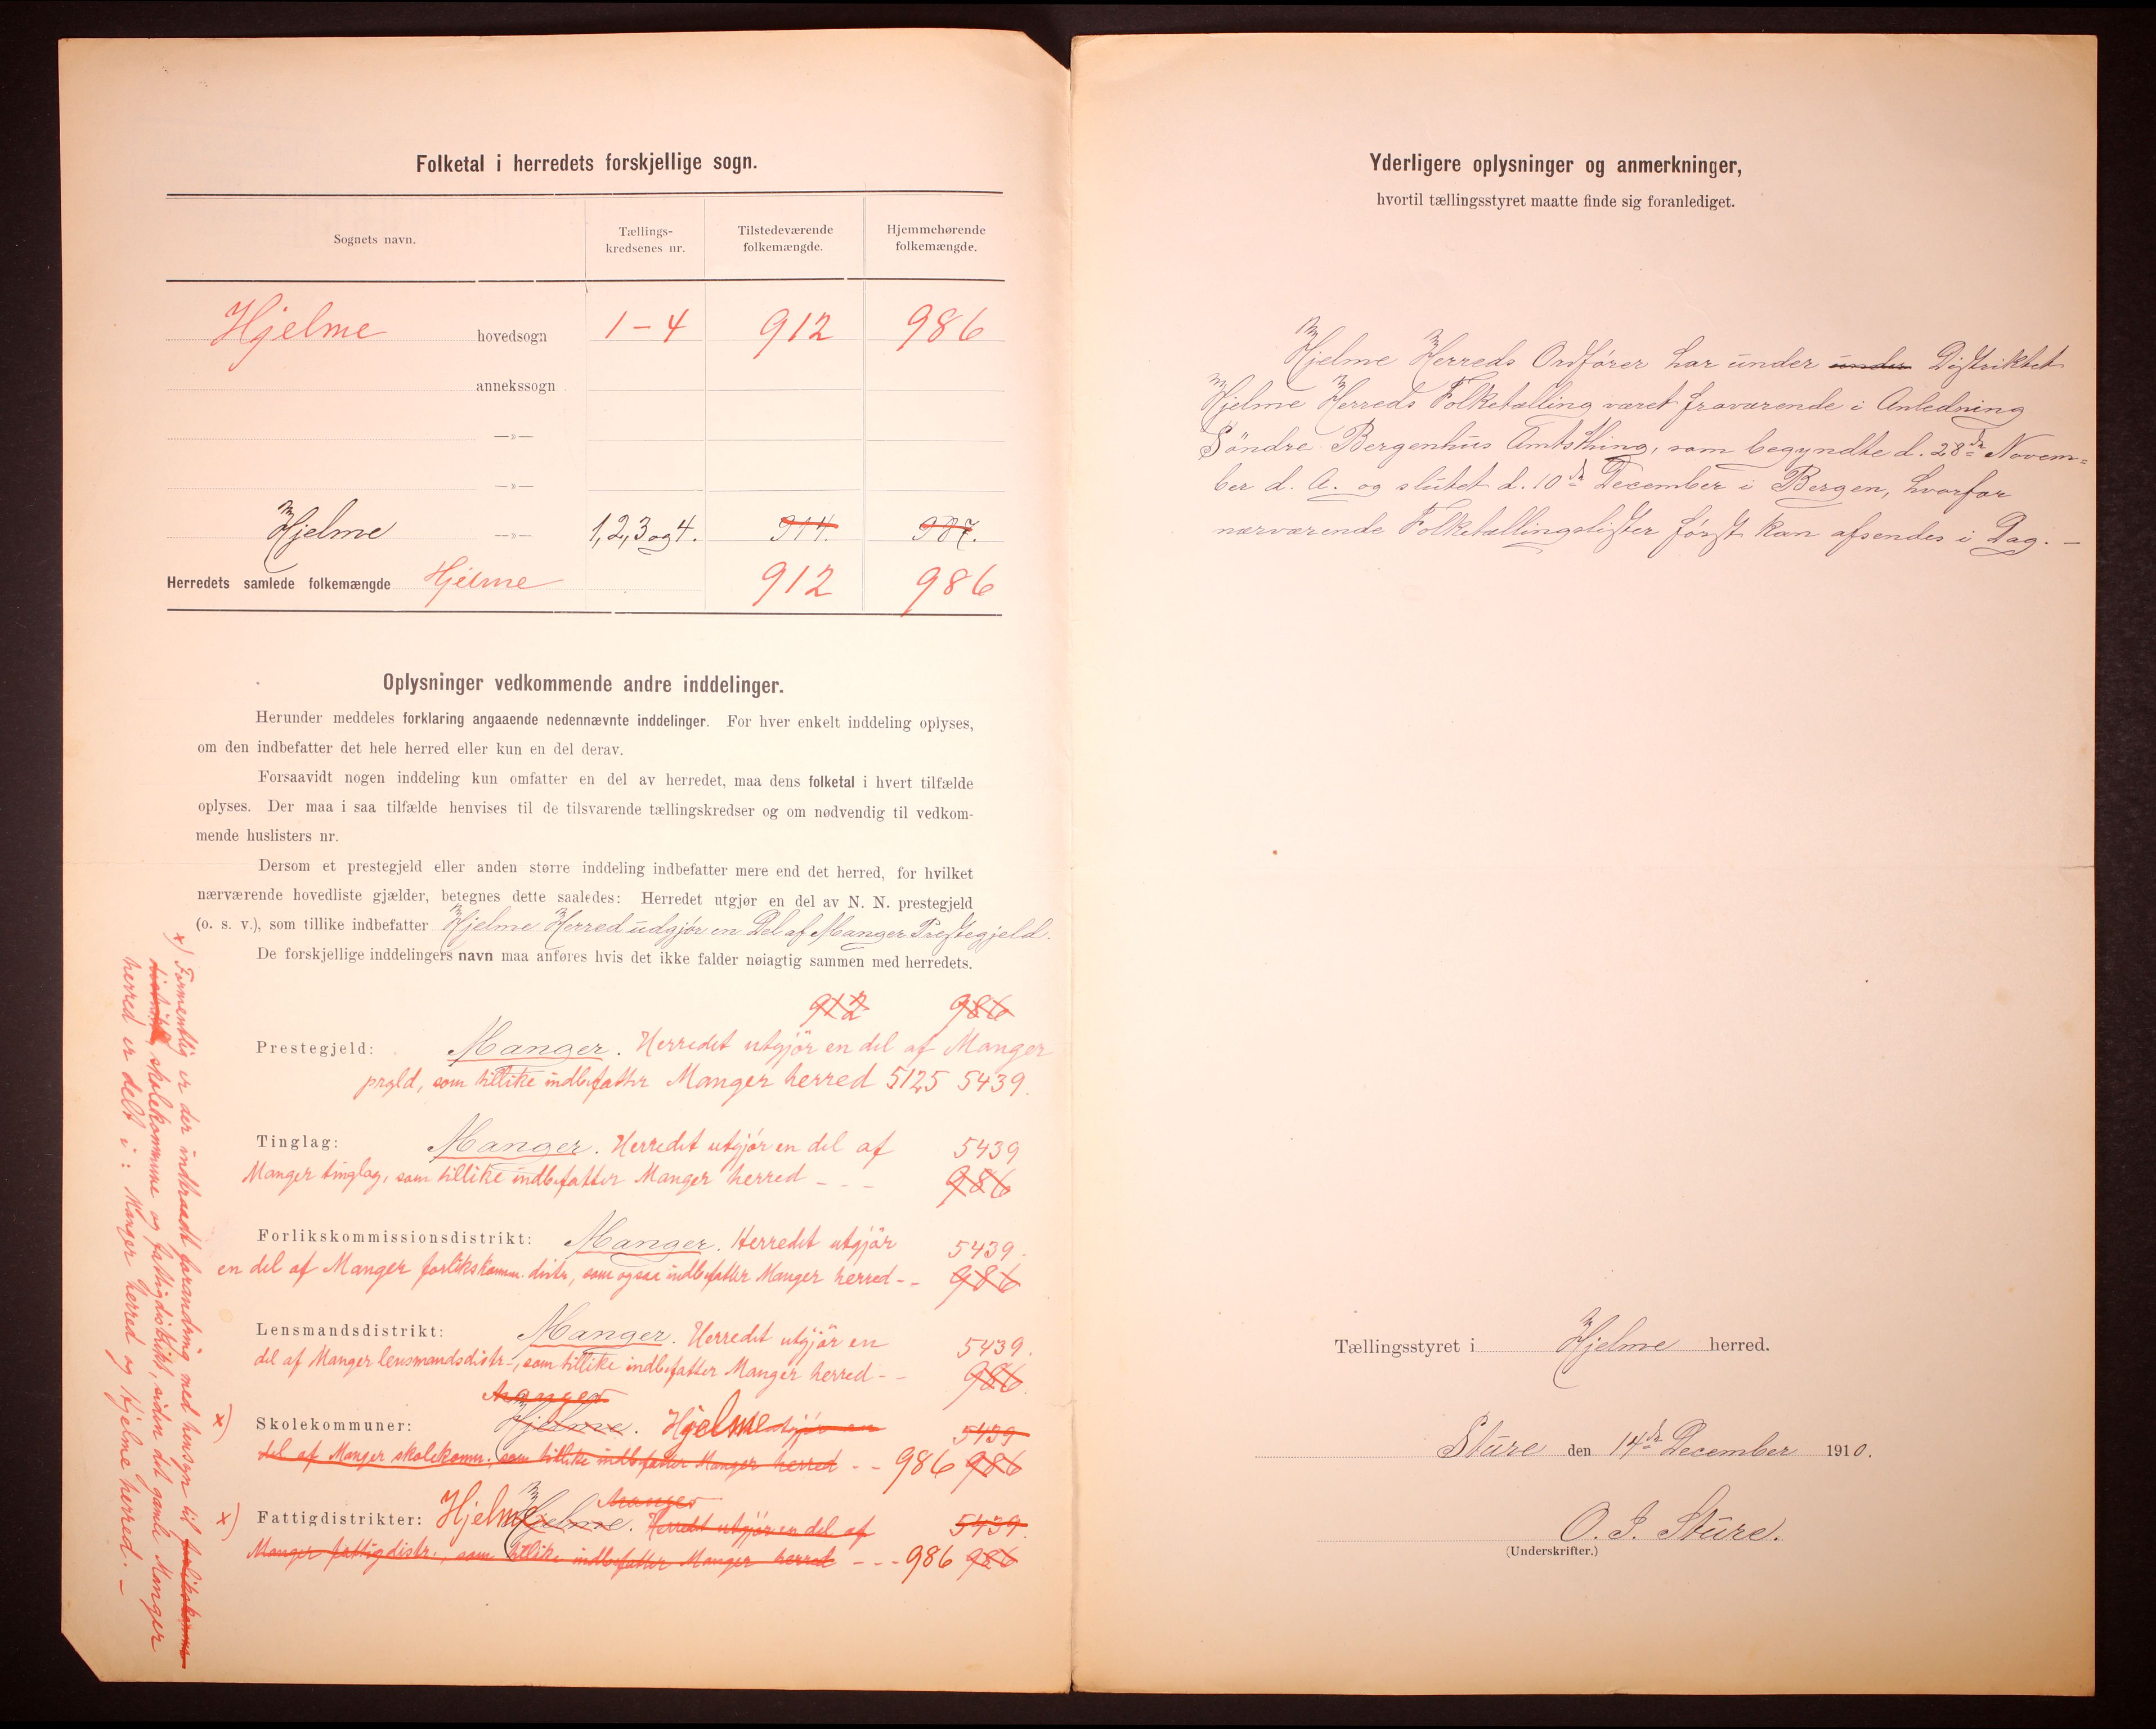 Folketal i herredets forskjellige sogn.
Sognets navn.
Tællings-
kredsenes nr.
Tilstedeværende
folkemængde.
Hjemmehørende
folkemængde.
Hjelme hovedsogn 1-4 912 986
annekssogn
—»—
—»—
Hjelme —»— 1, 2, 3 og 4. 914. 987.
Herredets samlede folkemængde Hjelme 912 986
Oplysninger vedkommende andre inddelinger.
Herunder meddeles forklaring angaaende nedennævnte inddelinger. For hver enkelt inddeling oplyses,
om den indbefatter det hele herred eller kun en del derav.
Forsaavidt nogen inddeling kun omfatter en del av herredet, maa dens folketal i hvert tilfælde
oplyses. Der maa i saa tilfælde henvises til de tilsvarende tællingskredser og om nødvendig til vedkom-
mende huslisters nr.
Dersom et prestegjeld eller anden større inddeling indbefatter mere end det herred, for hvilket
nærværende hovedliste gjælder, betegnes dette saaledes: Herredet utgjør en del av N. N. prestegjeld
(o. s. v.), som tillike indbefatter Hjelme Herred udgjør en Del af Manger Prestegjeld.
De forskjellige inddelingers navn maa anføres hvis det ikke falder nøiagtig sammen med herredets.
912 986
Prestegjeld: Manger. Herredet utgjör en del af Manger
prgld, som tillike indbefatter Manger herred 5125 5439.
Tinglag: Manger. Herredet utgjör en del af 5439
Manger tinglag, som tillike indbefatter Manger herred - - - 986
Forlikskommissionsdistrikt: Manger. Herredet utgjör 5439.
en del af Manger forlikskomm. distr, som ogsaa indbefatter Manger herred - - 986
Lensmandsdistrikt: Manger. Herredet utgjör en 5439.
del af Manger lensmandsdistr-, som tillike indbefatter Manger herred - - 986
Manger
x) Skolekommuner: Hjelme. Hjelme utgjör en 5439
del af Manger skolekomm. som tillike indbefatter Manger herred - - 986 986
Manger
x) Fattigdistrikter: Hjelme Hjelme. Herredet utgjör en del af 5439.
Manger fattigdistr., som tillike indbefatter Manger herred - - - 986 986
x) Formentlig er der indtraadt forandring med hensyn til
skolekommune og fattigdistrikt, siden det gamle Manger
herred er delt i: Manger herred og Hjelme herred. -
Yderligere oplysninger og anmerkninger,
hvortil tællingsstyret maatte finde sig foranlediget.
Hjelme Herreds Ordfører har under under Distriktet
Hjelme Herreds Folketælling været fraværende i Anledning
Söndre Bergenhus Amtsthing, som begyndte d. 28de Novem=
ber d. A. og slutet d. 10de December i Bergen, hvorfor
nærværende Folketællingslister først kan afsendes i Dag. —
Tællingsstyret i Hjelme herred.
Sture den 14de December 1910.
O. J. Sture.
(Underskrifter.)